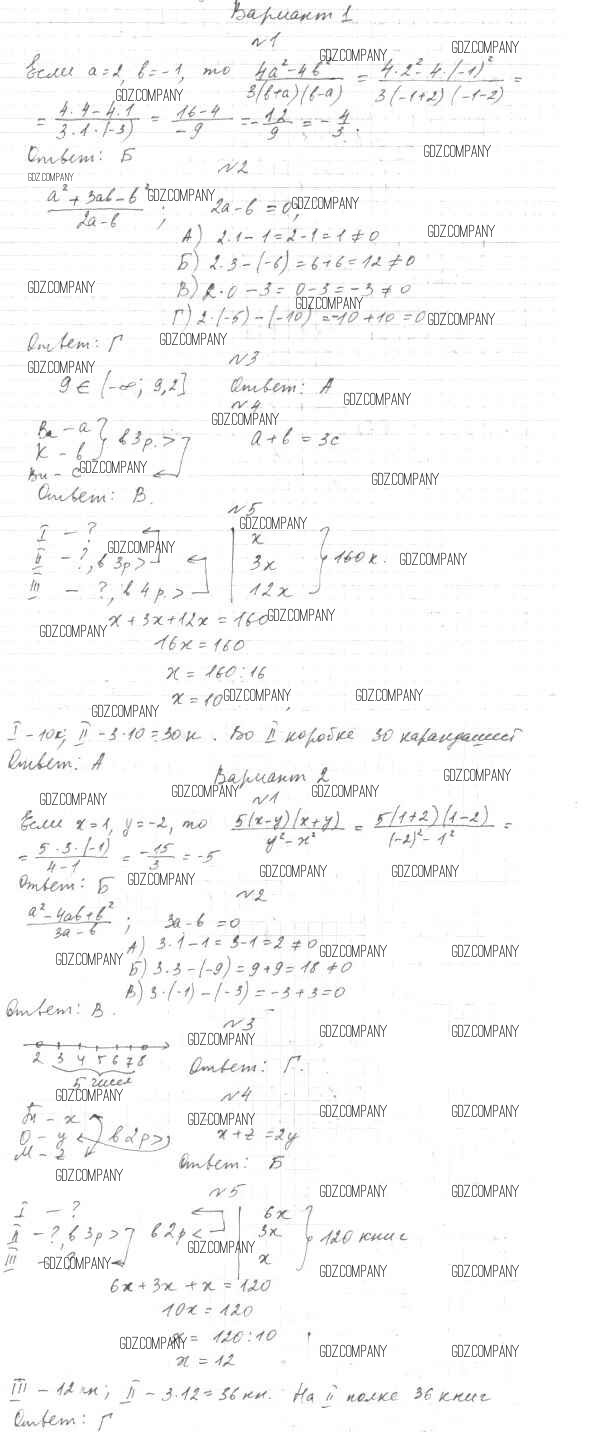 Вариант 1
№1
Если a=2, b=-1, то (4a²-4b²)/(3(b+a)(b-a)) = (4·2²-4·(-1)²)/(3(-1+2)(-1-2)) =
= (4·4-4·1)/(3·1·(-3)) = (16-4)/(-9) = -12/9 = -4/3.
Ответ: Б
№2
(a²+3ab-b²)/(2a-b); 2a-b=0,
А) 2·1-1=2-1=1≠0
Б) 2·3-(-6)=6+6=12≠0
В) 2·0-3=0-3=-3≠0
Г) 2·(-5)-(-10)=-10+10=0
Ответ: Г
№3
9∈(-∞; 9,2] Ответ: А
№4
Ва - a
К - b } в 3 р. > a+b=3c
Ви - c
Ответ: В.
№5
I - ? x
II - ?, в 3р > 3x } 160 к.
III - ?, в 4 р. > 12x
x+3x+12x=160
16x=160
x=160:16
x=10
I-10к; II-3·10=30к. Во II коробке 30 карандашей
Ответ: А
Вариант 2
№1
Если x=1, y=-2, то (5(x-y)(x+y))/(y²-x²) = (5(1+2)(1-2))/((-2)²-1²) =
= (5·3·(-1))/(4-1) = -15/3 = -5
Ответ: Б
№2
(a²-4ab+b²)/(3a-b); 3a-b=0
А) 3·1-1=3-1=2≠0
Б) 3·3-(-9)=9+9=18≠0
В) 3·(-1)-(-3)=-3+3=0
Ответ: В.
№3
2 3 4 5 6 7 8
5 чисел Ответ: Г.
№4
- x
О - y в 2р > x+z=2y
М - z
Ответ: Б
№5
I - ? 6x
II - ?, в 3р > в 2р < 3x } 120 книг
III - ? x
6x+3x+x=120
10x=120
x=120:10
x=12
III - 12 кн; II - 3·12=36 кн. На II полке 36 книг
Ответ: Г
GDZ.COMPANY